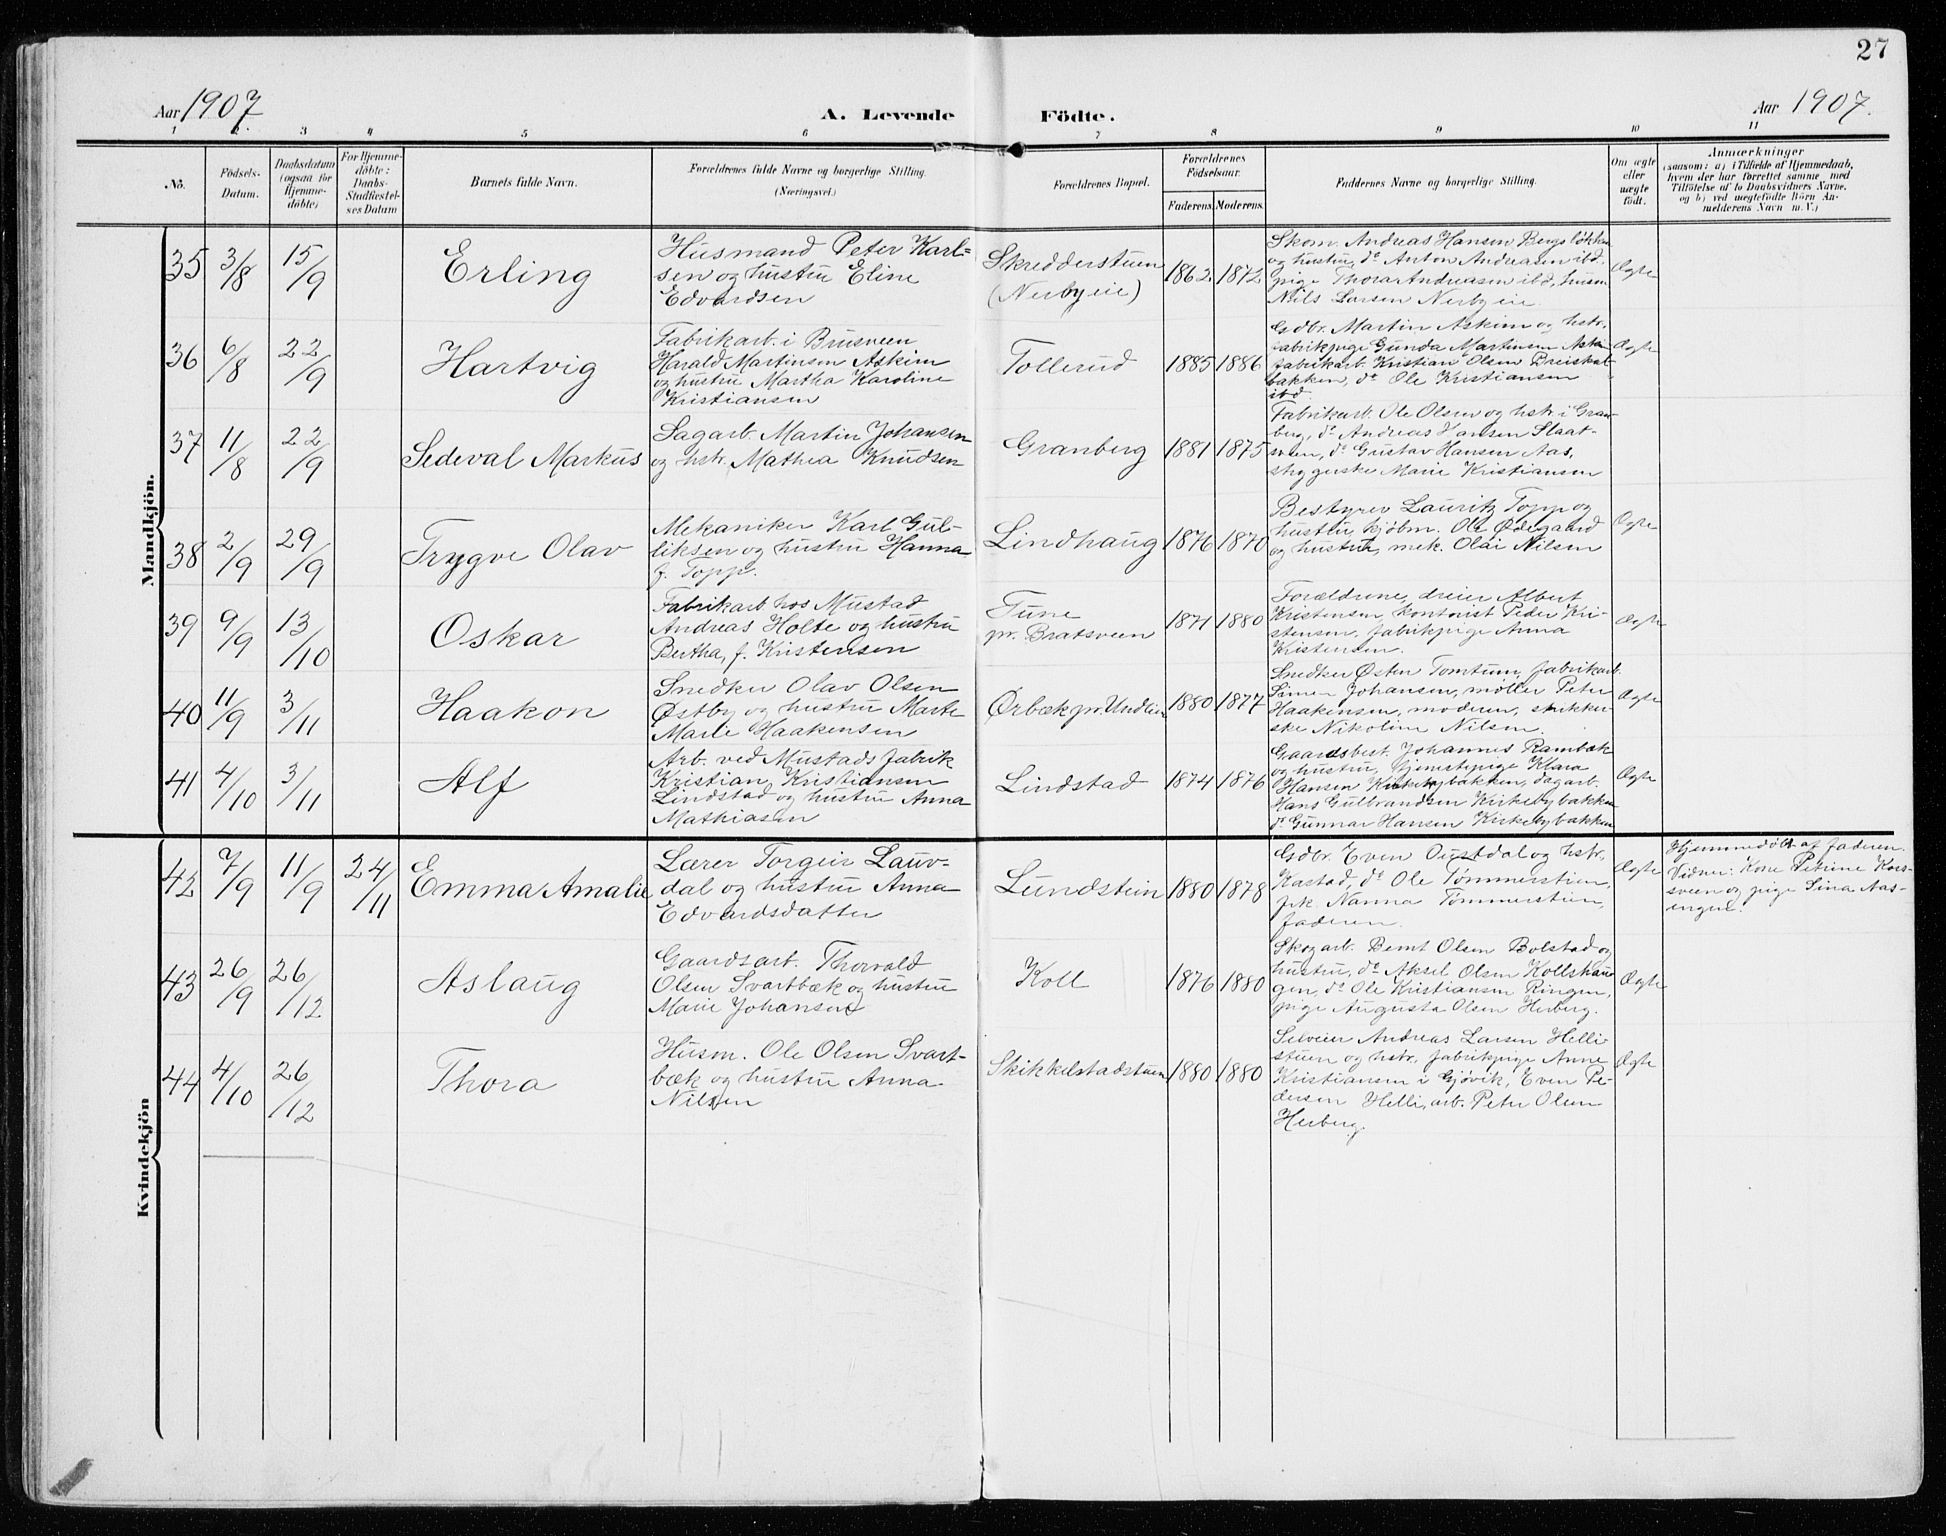 27
Aar 1907
A. Levende Födte.
Aar 1907.
1 2 3 4 5 6 7 8 9 10 11
No.
Födsels-
Datum.
Daabsdatum
(ogsaa for
Hjemme-
döbte)
For Hjemme-
döbte:
Daabs-
Stadfæstel-
ses Datum
Barnets fulde Navn.
Forældrenes fulde Navne og borgerlige Stilling.
(Næringsvei.)
Forældrenes Bopæl.
Forældrenes
Födselsaar.
Faderens. Moderens.
Faddernes Navne og borgerlige Stilling.
Om ægte
eller
uægte
födt.
Anmærkninger
(saasom: a) i Tilfælde af Hjemmedaab,
hvem der har forrettet samme, med
Tilföielse af to Daabsvidners Navne,
og b) ved uægtefödte Börn An-
melderens Navn m. V.)
Mandkjön.
35 3/8 15/9
Erling
Husmand Peter Karl-
sen og hustru Eline
Edvardsen
Skredderstuen
(Nerby eie)
1862. 1872
Skom. Andreas Hansen Bergsløkken
og hustru, do Anton Andreasen ibd.
pige Thora Andreasen ibd, husm
Nils Larsen Nerby eie.
Ægte
36 6/8 22/9
Hartvig
Fabrikarb. i Brusveen
Harald Martinsen Askim
og hustru Martha Karoline
Kristiansen
Tollerud
1885 1886
Gdbr. Martin Askim og hstr.
fabrikpige Gunda Martinsen Askim
fabrikarb. Kristian Olsen
bakken, do Ole Kristiansen
ibd.
Ægte
37 11/8 22/9
Sedeval Markus
Sagarb. Martin Johansen
og hstr. Mathea Knudsen
Granberg
1881 1875
Fabrikarb. Ole Olsen og hstr. i Gran-
berg, do Andreas Hansen Slaat-
sveen, do Gustav Hansen Aas,
strygerske Marie Kristiansen
38 2/9 29/9
Trygve Olav
Mekaniker Karl Gul-
liksen og hustru Hanna
f. Topp.
Lindhaug
1876 1870
Bestyrer Lauritz Topp og
hustru, kjøbm. Ole Ødegaard
og hustru, mek. Olai Nilsen
Ægte
39 9/9 13/10
Oskar
Fabrikarb hos Mustad
Andreas Holte og hustru
Bertha, f. Kristensen
Tune
pr. Bratsveen
1871 1880
Forældrene, dreier Albert
Kristensen, kontorist Peder Kri-
stensen, fabrikpige Anna
Kristensen.
Ægte
40 11/9 3/11
Haakon
Snedker Olav Olsen
Østby og hustru Marte
Marie Haakensen
Ørbæk pr. Undlien
1880 1877
Snedker Østen Tomtum, fabrikarb.
Simen Johansen, møller Peter
Haakensen, moderen, strikker-
ske Nikoline Nilsen.
Ægte
41 4/10 3/11
Alf
Arb. ved Mustads fabrik
Kristian Kristiansen
Lindstad og hustru Anna
Mathiasen
Lindstad
1874 1876
Gaardsbest. Johannes Rambæk
og hustru, tjenestepige Klara
Hansen Kirkebybakken, dagarb.
Hans Gulbrandsen Kirkebybakken
do Gunnar Hansen Kirkebybakken
Ægte
Kvindekjön
42 7/9 11/9 24/11
Emma Amalie
Lærer Torgeir Lauv-
dal og hustru Anna
Edvardsdatter
Lundstein
1880 1878
Gdbr. Even Oustdal og hstr.
Kastad, do Ole Tømmerstien,
frk. Nanna Tømmerstien,
faderen.
Ægte
Hjemmedøbt af faderen.
Vidner: Kone Petrine Kors-
sveen og pige Sina Aas-
engen.
43 26/9 26/12
Aslaug
Gaardsarb. Thorvald
Olsen Svartbæk og hustru
Marie Johansen
Koll
1876 1880
Skogarb. Bernt Olsen Bolstad og
hustru, do Aksel Olsen Kollshau-
gen, do Ole Kristiansen Ringen,
pige Augusta Olsen Herberg.
Ægte
44 4/10 26/12
Thora
Husm. Ole Olsen Svart-
bæk og hustru Anna
Nilsen
Skikkelstadstuen
1880 1880
Selveier Andreas Larsen Helli
stuen og hstr, fabrikpige Anne
Kristiansen i Gjøvik, Even Pe-
dersen Helli, arb. Peter Olsen
Herberg.
Ægte